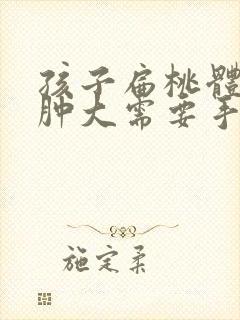 孩子扁桃體
肿大需要手
施定柔